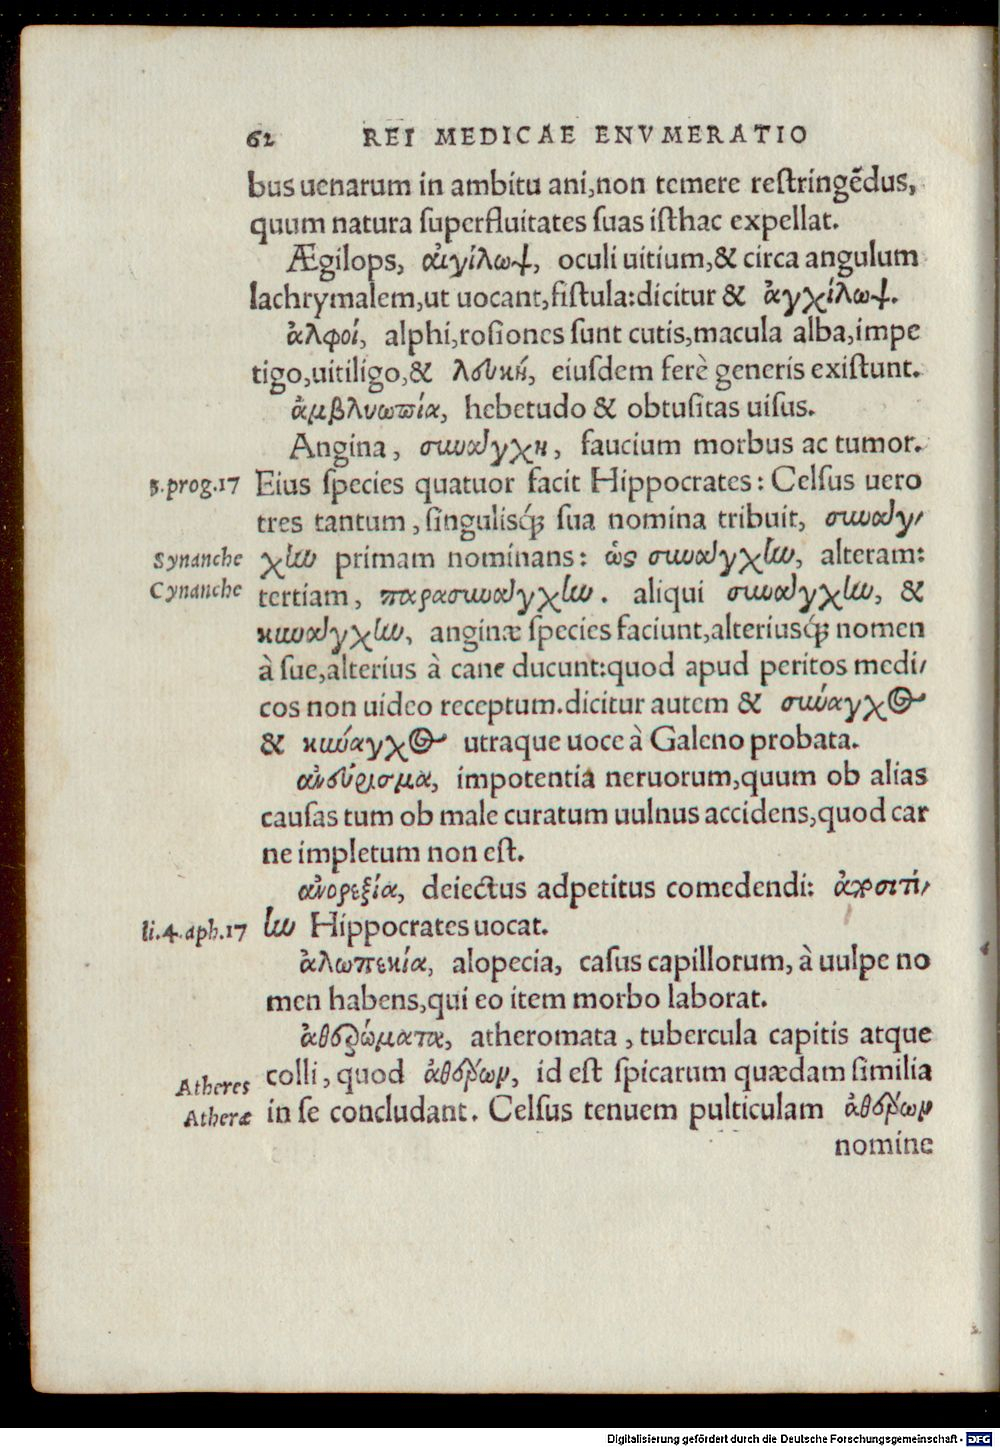 62 REI MEDICAE ENVMERATIO
bus uenarum in ambitu ani,non temere restringẽdus,
quum natura superfluitates suas isthac expellat.
Ægilops, αἰγίλωψ, oculi uitium,& circa angulum
lachrymalem,ut uocant,fistula:dicitur & ἀγχίλωψ.
ἀλφοί, alphi,rosiones sunt cutis,macula alba,impe
tigo,uitiligo,& λευκή, eiusdem ferè generis existunt.
ἀμβλυωπία, hebetudo & obtusitas uisus.
Angina, συνάγχη, faucium morbus ac tumor.
3.prog.17 Eius species quatuor facit Hippocrates: Celsus uero
tres tantum, singulisq́; sua nomina tribuit, συνάγ/
Synanche χην primam nominans: ὡς συνάγχην, alteram:
Cynanche tertiam, παρασυνάγχην. aliqui συνάγχην, &
κυνάγχην, anginæ species faciunt,alteriusq́; nomen
à sue,alterius à cane ducunt:quod apud peritos medi/
cos non uideo receptum.dicitur autem & σύναγχος
& κύναγχος utraque uoce à Galeno probata.
ἀνεύρισμα, impotentia neruorum,quum ob alias
causas tum ob male curatum uulnus accidens,quod car
ne impletum non est.
ἀνορεξία, deiectus adpetitus comedendi: ἀποσιτί/
li.4.aph.17 ην Hippocrates uocat.
ἀλωπεκία, alopecia, casus capillorum, à uulpe no
men habens,qui eo item morbo laborat.
ἀθερώματα, atheromata, tubercula capitis atque
Atheres colli, quod ἀθέρων, id est spicarum quædam similia
Atheræ in se concludant. Celsus tenuem pulticulam ἀθέρων
nomine
Digitalisierung gefördert durch die Deutsche Forschungsgemeinschaft - DFG